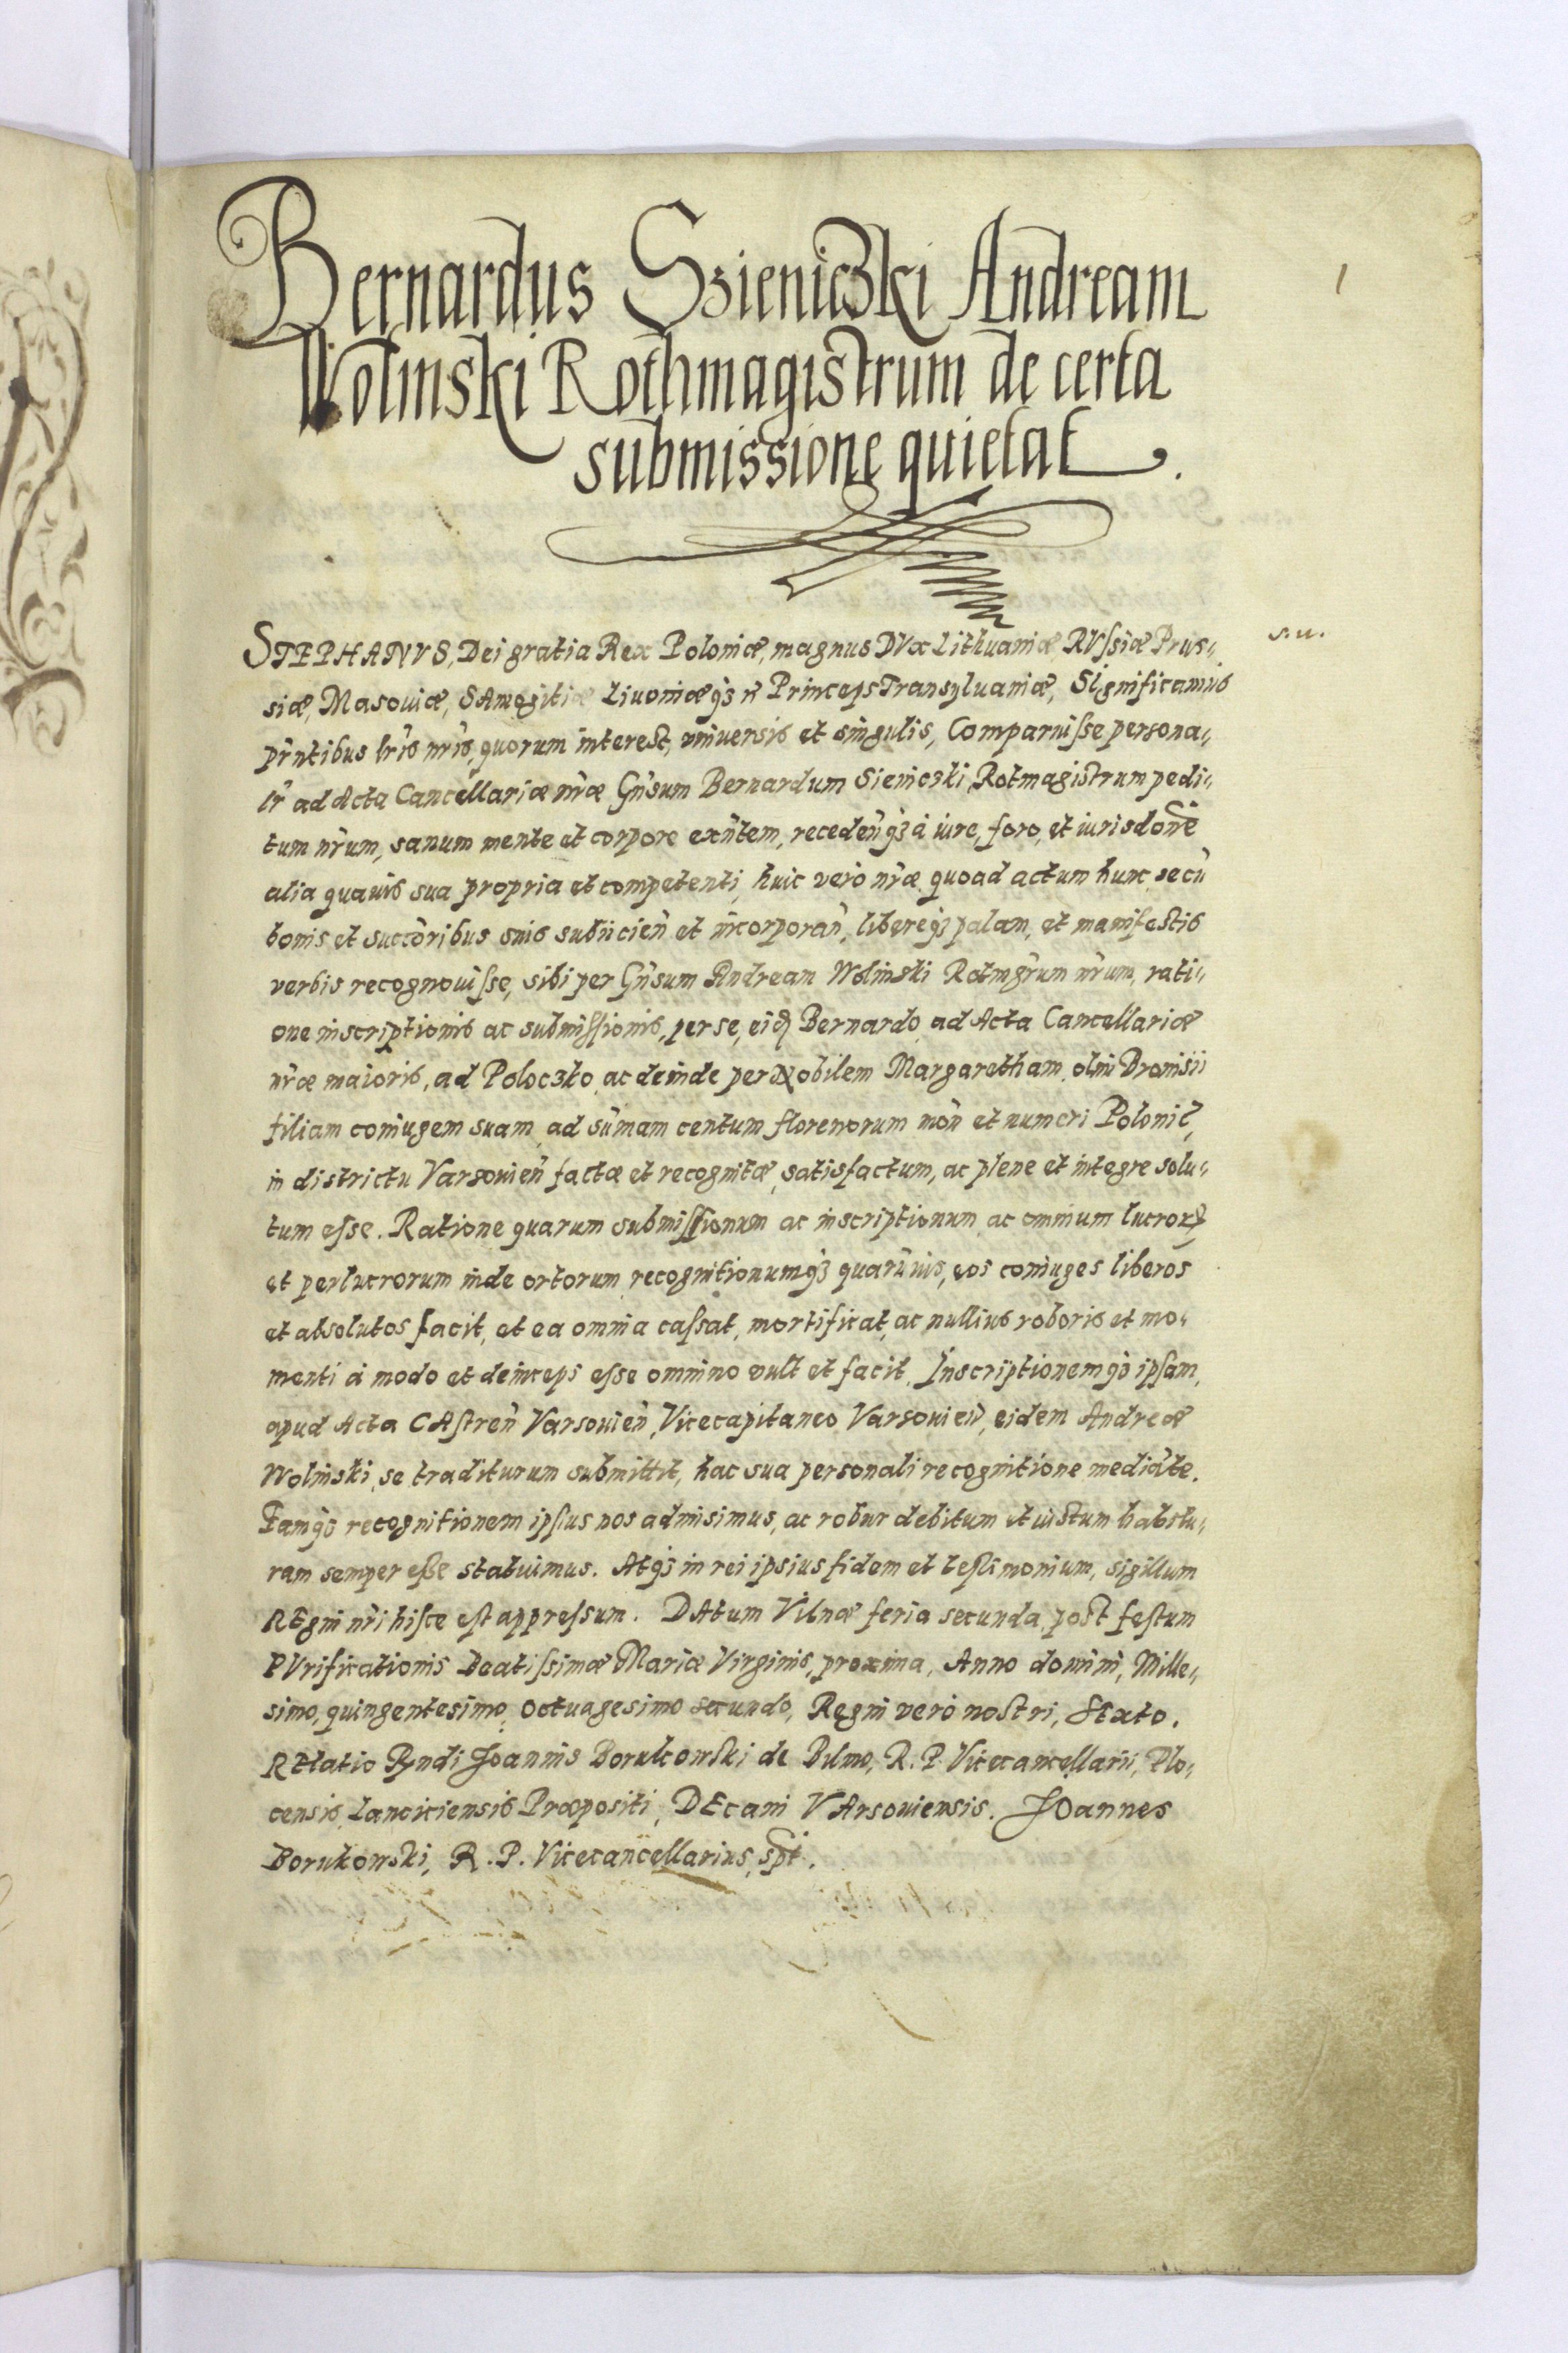 1
Bernardus Szieniczki Andream
Wolinski Rothmagistrum de certa
submissione quietat.
STEPHANVS, Dei gratia Rex Poloniæ, magnus DVx Lithuaniæ, RVssiæ Prus-
s.u.
siæ, Masoviæ, SAmogitiæ Livoniæqз et Princeps Transylvaniæ, SIgnificamus
pn̄tibus lr̄is nr̄is, quorum interest, vniversis et singulis, Comparuisse persona-
lr̄ ad Acta Cancellariæ nr̄æ Gn̄sum Bernardum Sieniczki, Rotmagistrum pedi-
tum nr̄um, sanum mente et corpore exn̄tem, receden̄qз à iure, foro, et iurisdone
alia quavis sua propria et competenti, huic verò nr̄æ quoad actum hunc secū
bonis et succoribus suis subiicien̄ et incorporan̄, libereqз palam, et manifestis
verbis recognouisse, sibi per Gn̄sum Andream Wolinski Rotmgr̄um nr̄um, rati-
one inscriptionis ac submissionis, per se, eid Bernardo ad Acta Cancellariæ
nr̄æ maioris, ad Poloczko ac deinde per Nobilem Margaretham olim Dronisii
filiam coniugem suam ad sūmam centum florenorum mon̄ et numeri Polonic̄,
in districtu Varsovien̄ factæ et recognitæ, satisfactum, ac plene et integre solu-
tum esse. Ratione quarum submissionum ac inscriptionum ac omnium lucroꝝ
et perlucrorum inde ortorum recognitionumqз quarūvis, eos coniuges liberos
et absolutos facit, et ea omnia cassat, mortificat, ac nullius roboris et mo-
menti à modo et deinceps esse omnino vult et facit. Inscriptionemqз ipsam,
apud Acta CAstren̄ Varsovien̄, Vicecapitaneo Varsovien̄, eidem Andreæ
Wolinski, se traditurum submittit, hac sua personali recognitione mediāte.
Eamqз recognitionem ipsius nos admisimus, ac robur debitum et iustum habitu-
ram semper esse statuimus. Atqз in rei ipsius fidem et testimonium, sigillum
REgni nr̄i hisce est appressum. DAtum Vilnæ feria secunda post festum
PVrificationis Beatissimæ Mariæ Virginis, proxima, Anno domini, Mille-
simo, quingentesimo, Octuagesimo secundo, Regni verò nostri, Sexto.
RElatio Rndi Joannis Borukowski de Bilino, R. P. Vicecancellarii, Plo-
censis Lanciciensis Præpositi, DEcani VArsoviensis. JOannes
Borukowski, R. P. Vicecancellarius, spt.